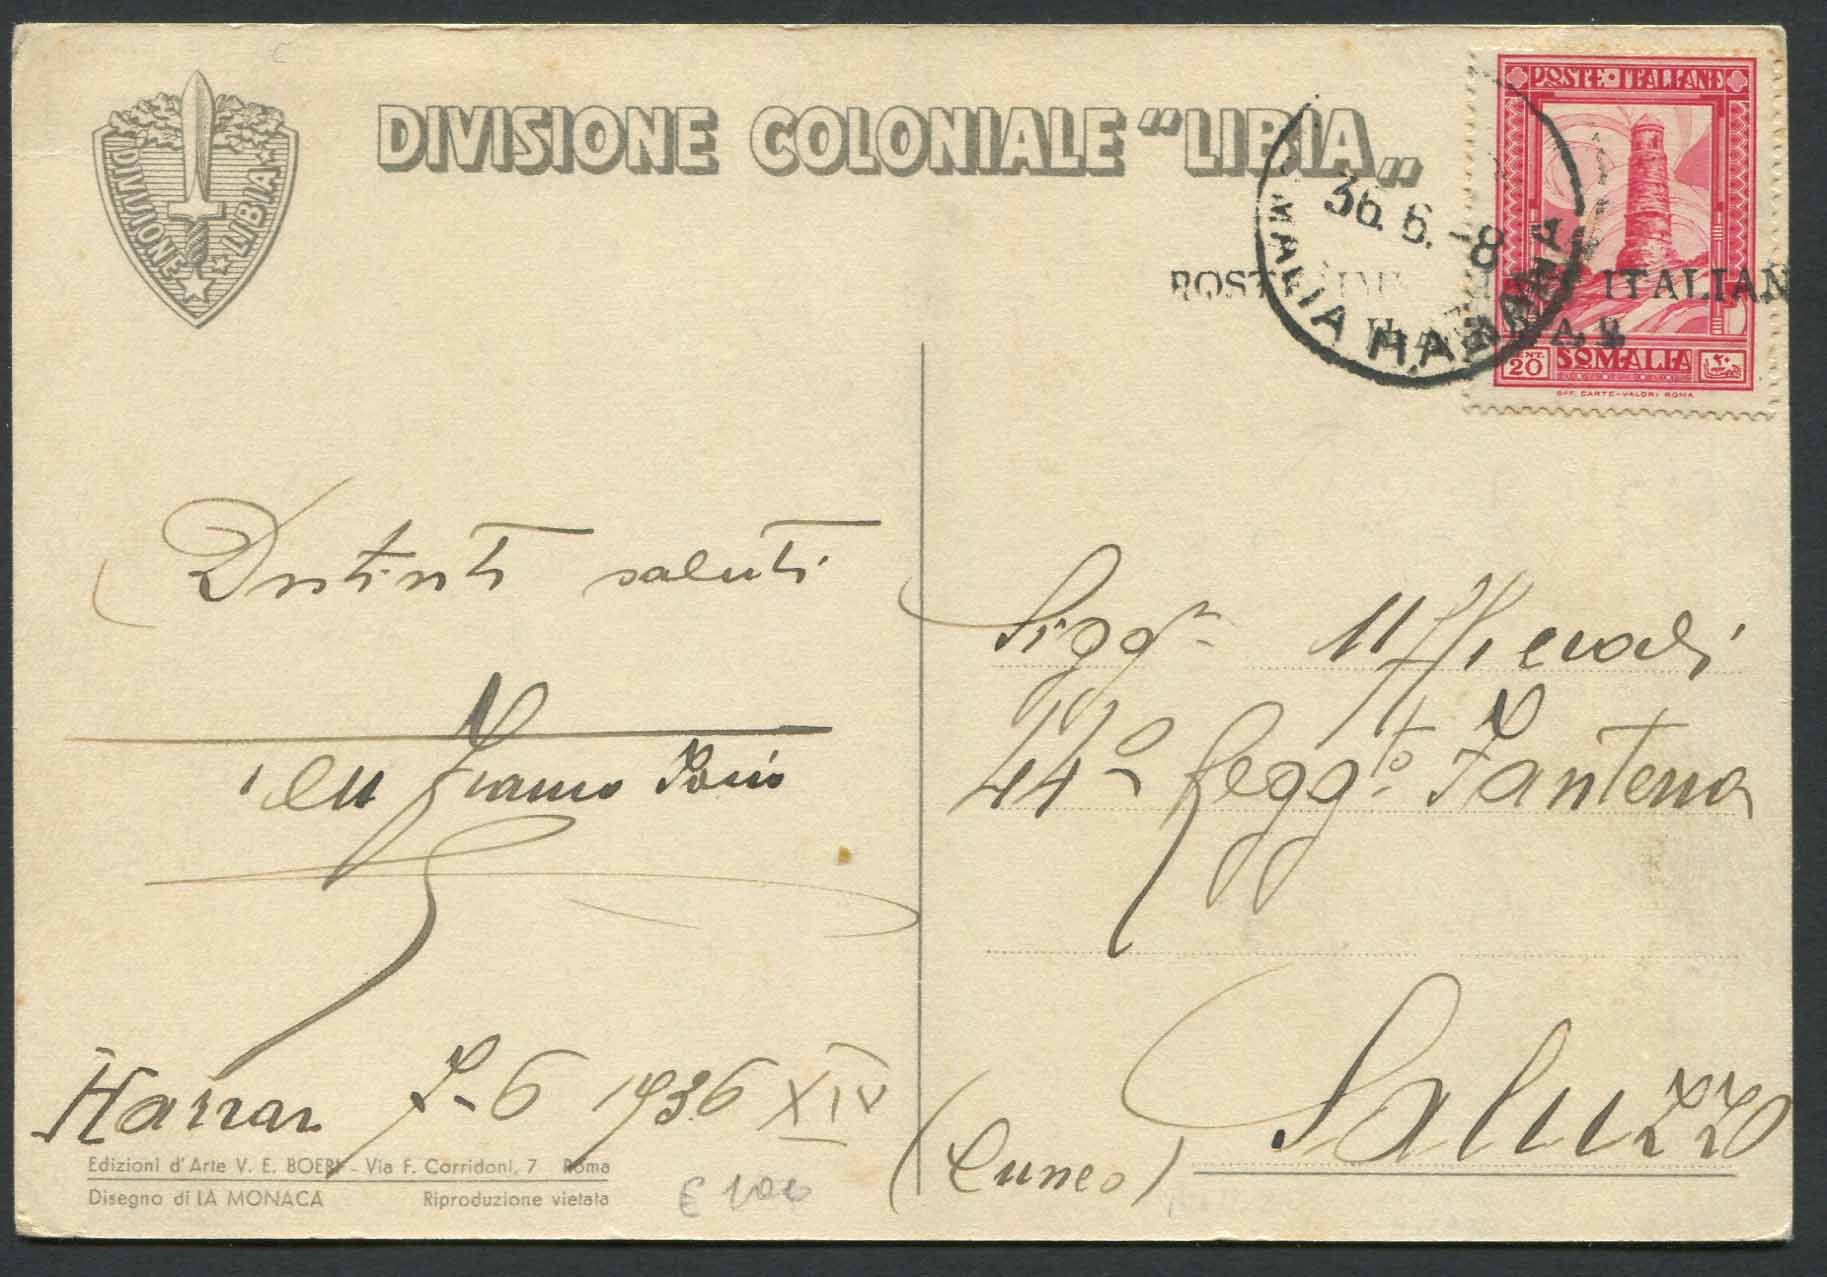 DIVISIONE LIBIA
DIVISIONE COLONIALE "LIBIA„
POSTE·ITALIANE
36. 6. -8
MARIA HARAR
POST ITALIAN
CENT. 20 SOMALIA
OFF. CARTE-VALORI ROMA
Distinti saluti
Harrar 7-6 1936 XIV
Edizioni d'Arte V. E. BOERI - Via F. Corridoni, 7 Roma
Disegno di LA MONACA Riproduzione vietata
€ 100
Sigg.ri Ufficiali
44º Regg.to Fanteria
Saluzzo
(Cuneo)